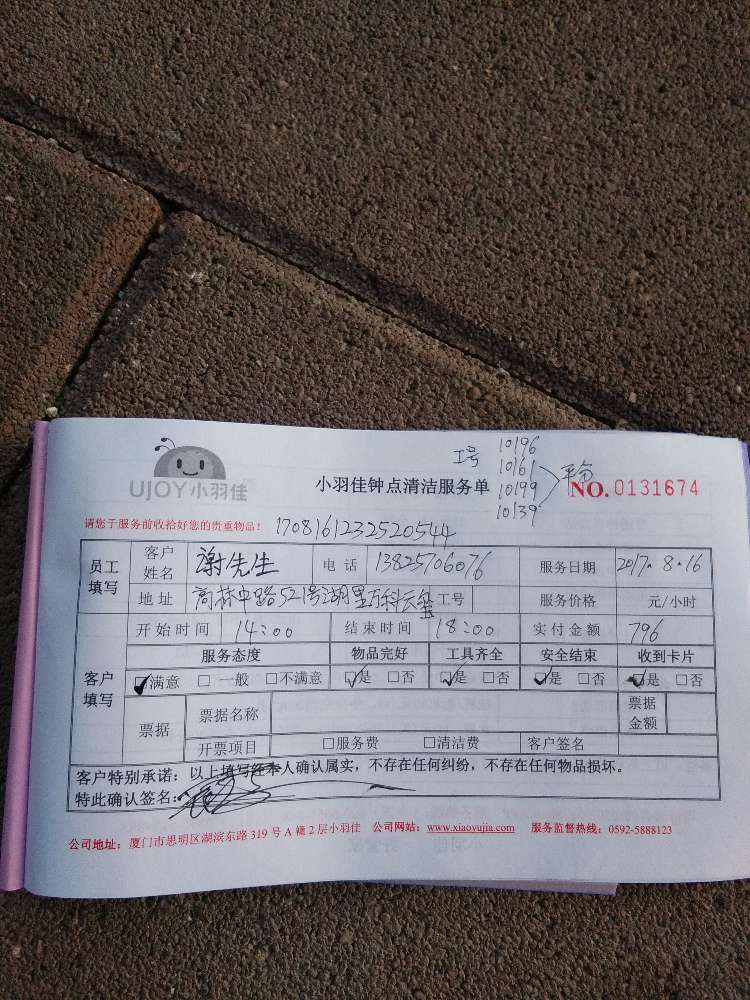 工号 10196
10161
10199
10139
平台
UJOY小羽佳
小羽佳钟点清洁服务单
NO. 0131674
请您于服务前收拾好您的贵重物品! 1708161232520544
员工填写 客户姓名 谢先生 电话 13825706076 服务日期 2017.8.16
地址 高林中路521号湖里万科云玺 工号 服务价格 元/小时
客户填写 开始时间 14:00 结束时间 18:00 实付金额 796
服务态度 物品完好 工具齐全 安全结束 收到卡片
☑满意 □一般 □不满意 ☑是 □否 ☑是 □否 ☑是 □否 ☑是 □否
票据 票据名称 票据金额
开票项目 □服务费 □清洁费 客户签名
客户特别承诺：以上填写经本人确认属实，不存在任何纠纷，不存在任何物品损坏。
特此确认签名：
公司地址：厦门市思明区湖滨东路 319 号 A 幢 2 层小羽佳 公司网站：www.xiaoyujia.com 服务监督热线：0592-5888123